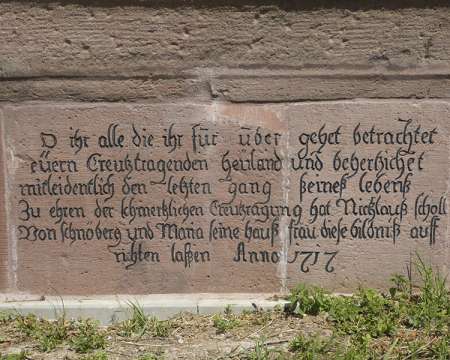 O ihr alle die ihr für über gehet betrachtet
eüern Creutztragenden heÿland und behertzichet
mitleidentlich den letzten gang seineß lebenß
Zu ehren der schmertzlichen Creutztragung hat Nicklauß scholl
Von schnoberg und Maria seine hauß frau diese bildniß auff
richten laßen Anno 1717